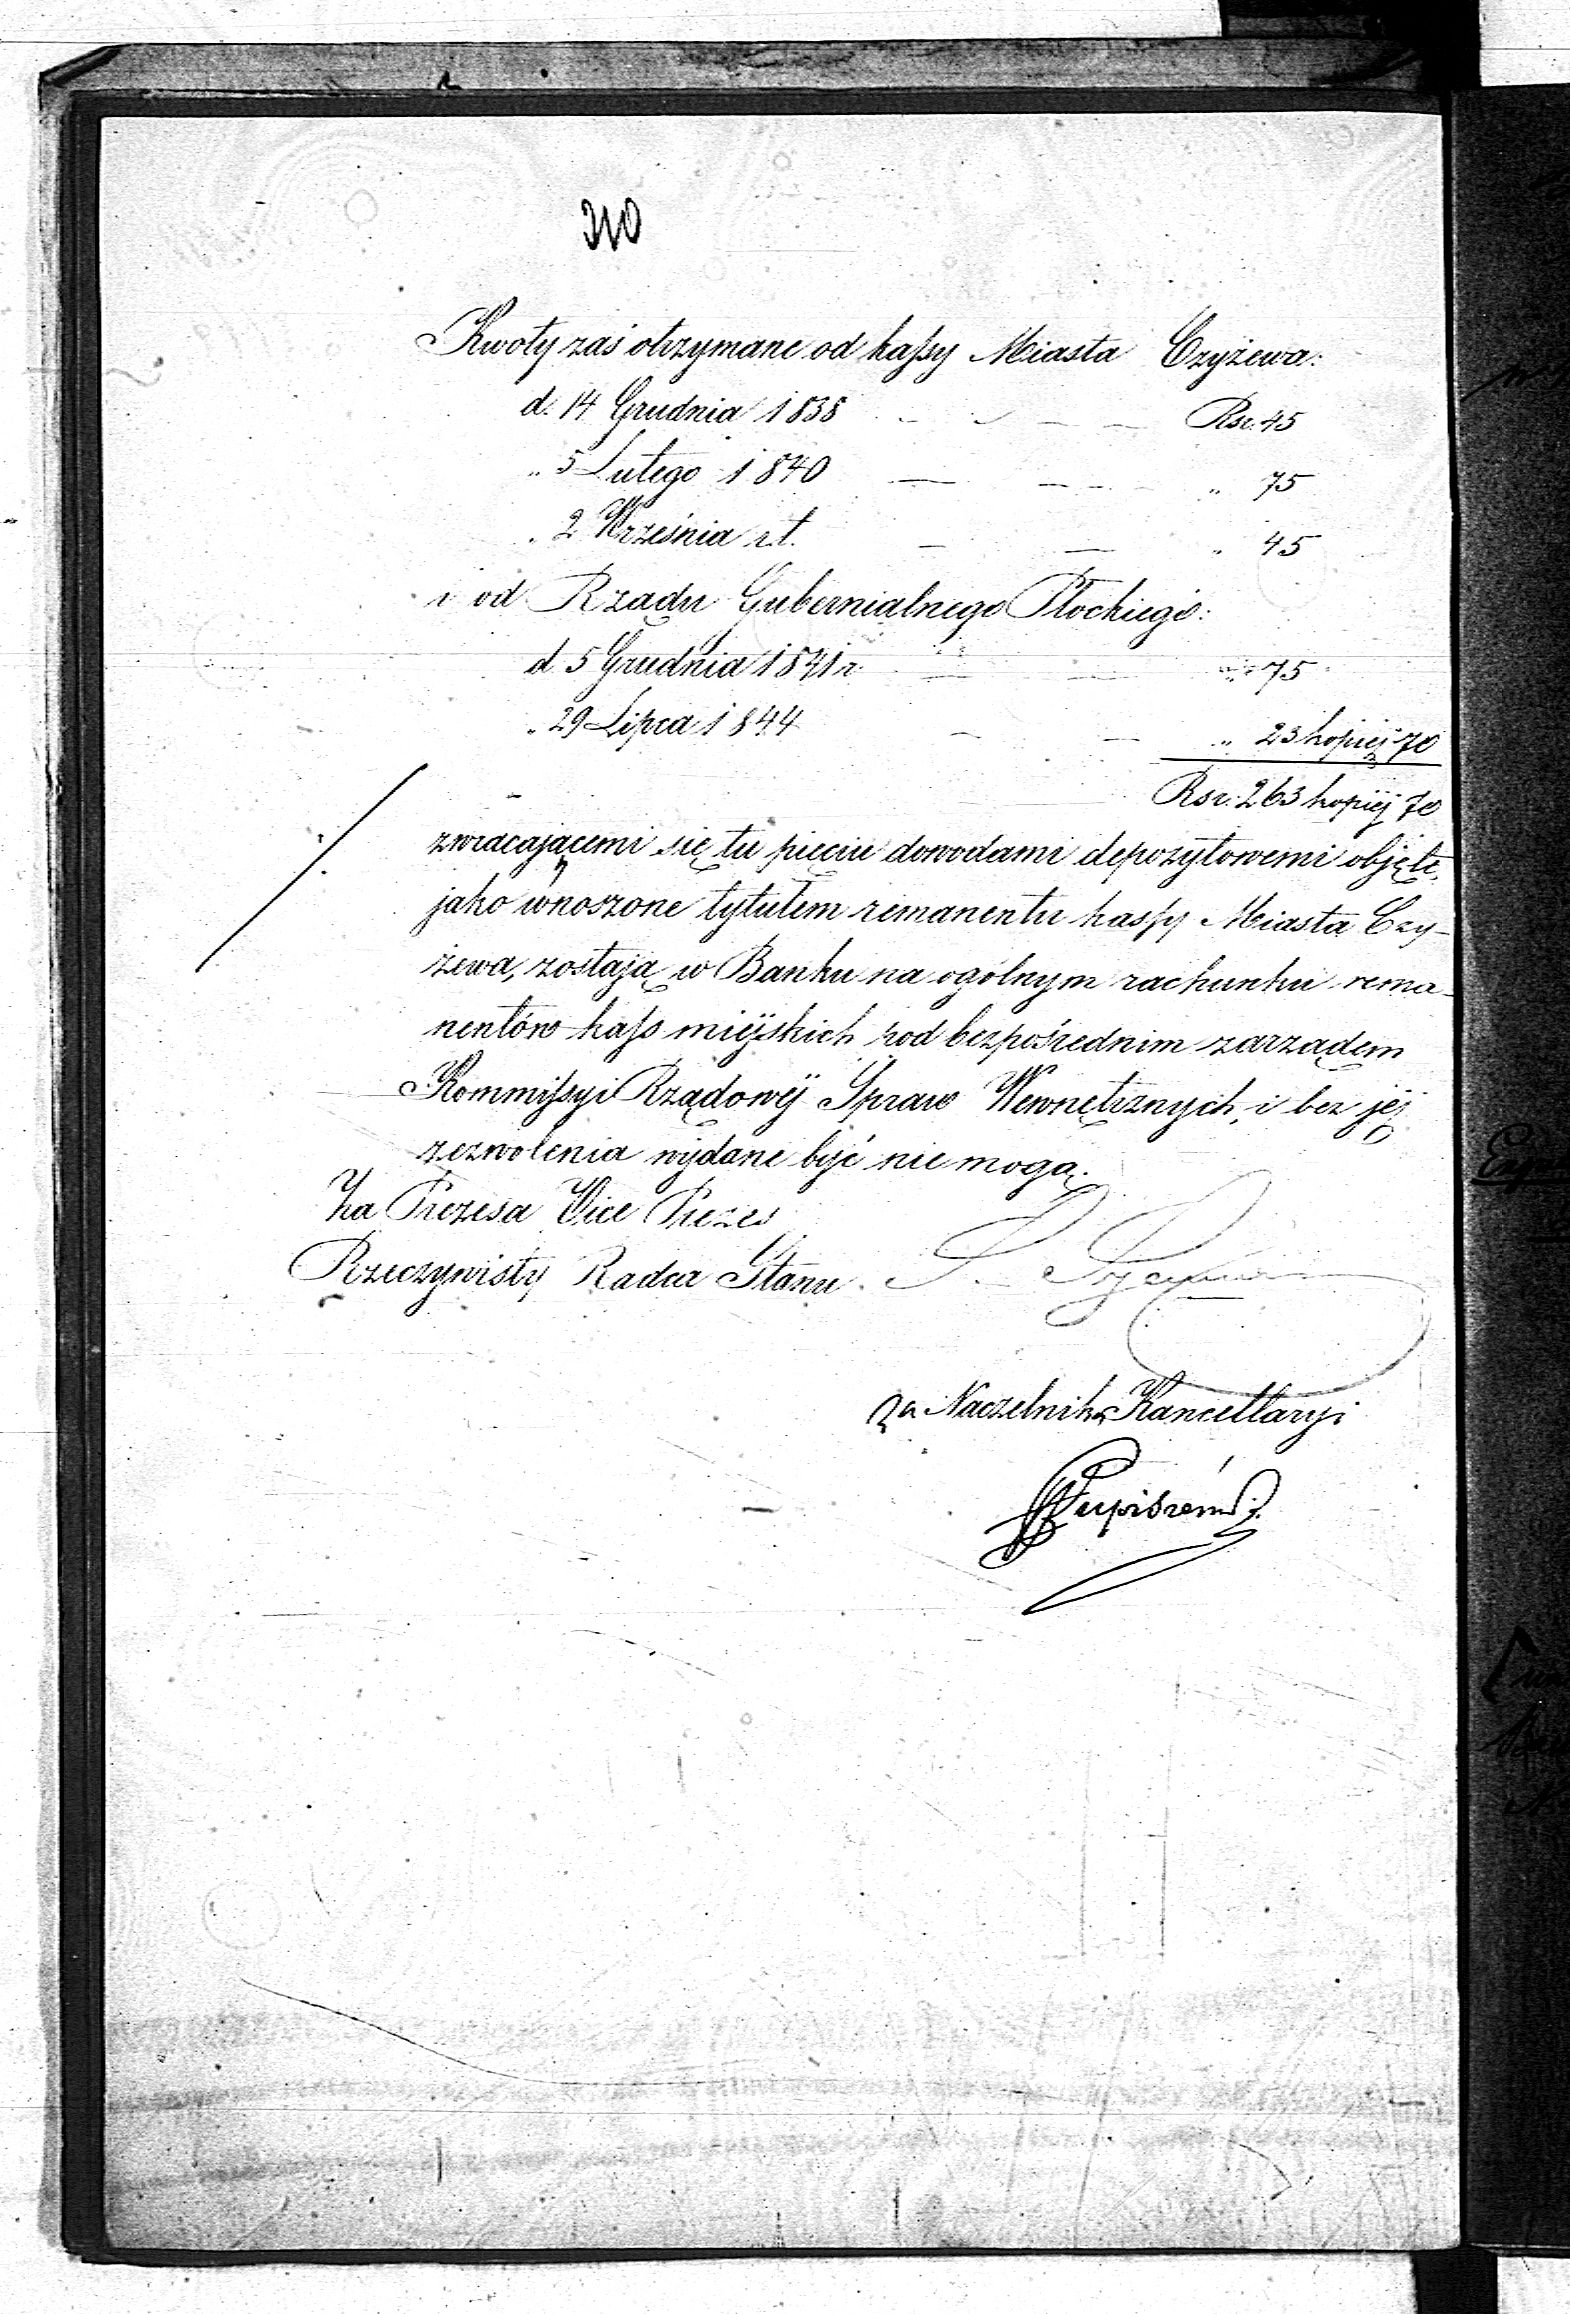 310
Kwoty zaś otrzymane od kassy Miasta Czyżewa:
d. 14 Grudnia 1838 Rsr. 45
" 5 Lutego 1840 " 75
" 2 Września r.t. " 45
i od Rządu Gubernialnego Płockiego:
d. 5 Grudnia 1841 r. " 75
" 29 Lipca 1844 " 23 kopiej 70
Rsr. 263 kopiej 70
zwracającemi się tu pięciu dowodami depozytowemi objęte,
jako wnoszone tytułem remanentu kassy Miasta Czy-
żewa, zostają w Banku na ogólnym rachunku rema-
nentów kass miejskich pod bezpośrednim zarządem
Kommissyi Rządowéj Spraw Wewnętrznych, i bez jéj
zezwolenia wydane być nie mogą.
Za Prezesa Vice Prezes
Rzeczywisty Radca Stanu
za Naczelnika Kancellaryi